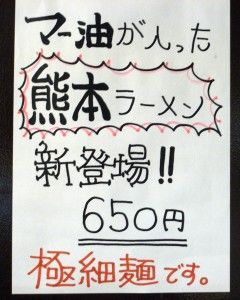 マー油が入った
熊本ラーメン
新登場!!
650円
極細麺です。